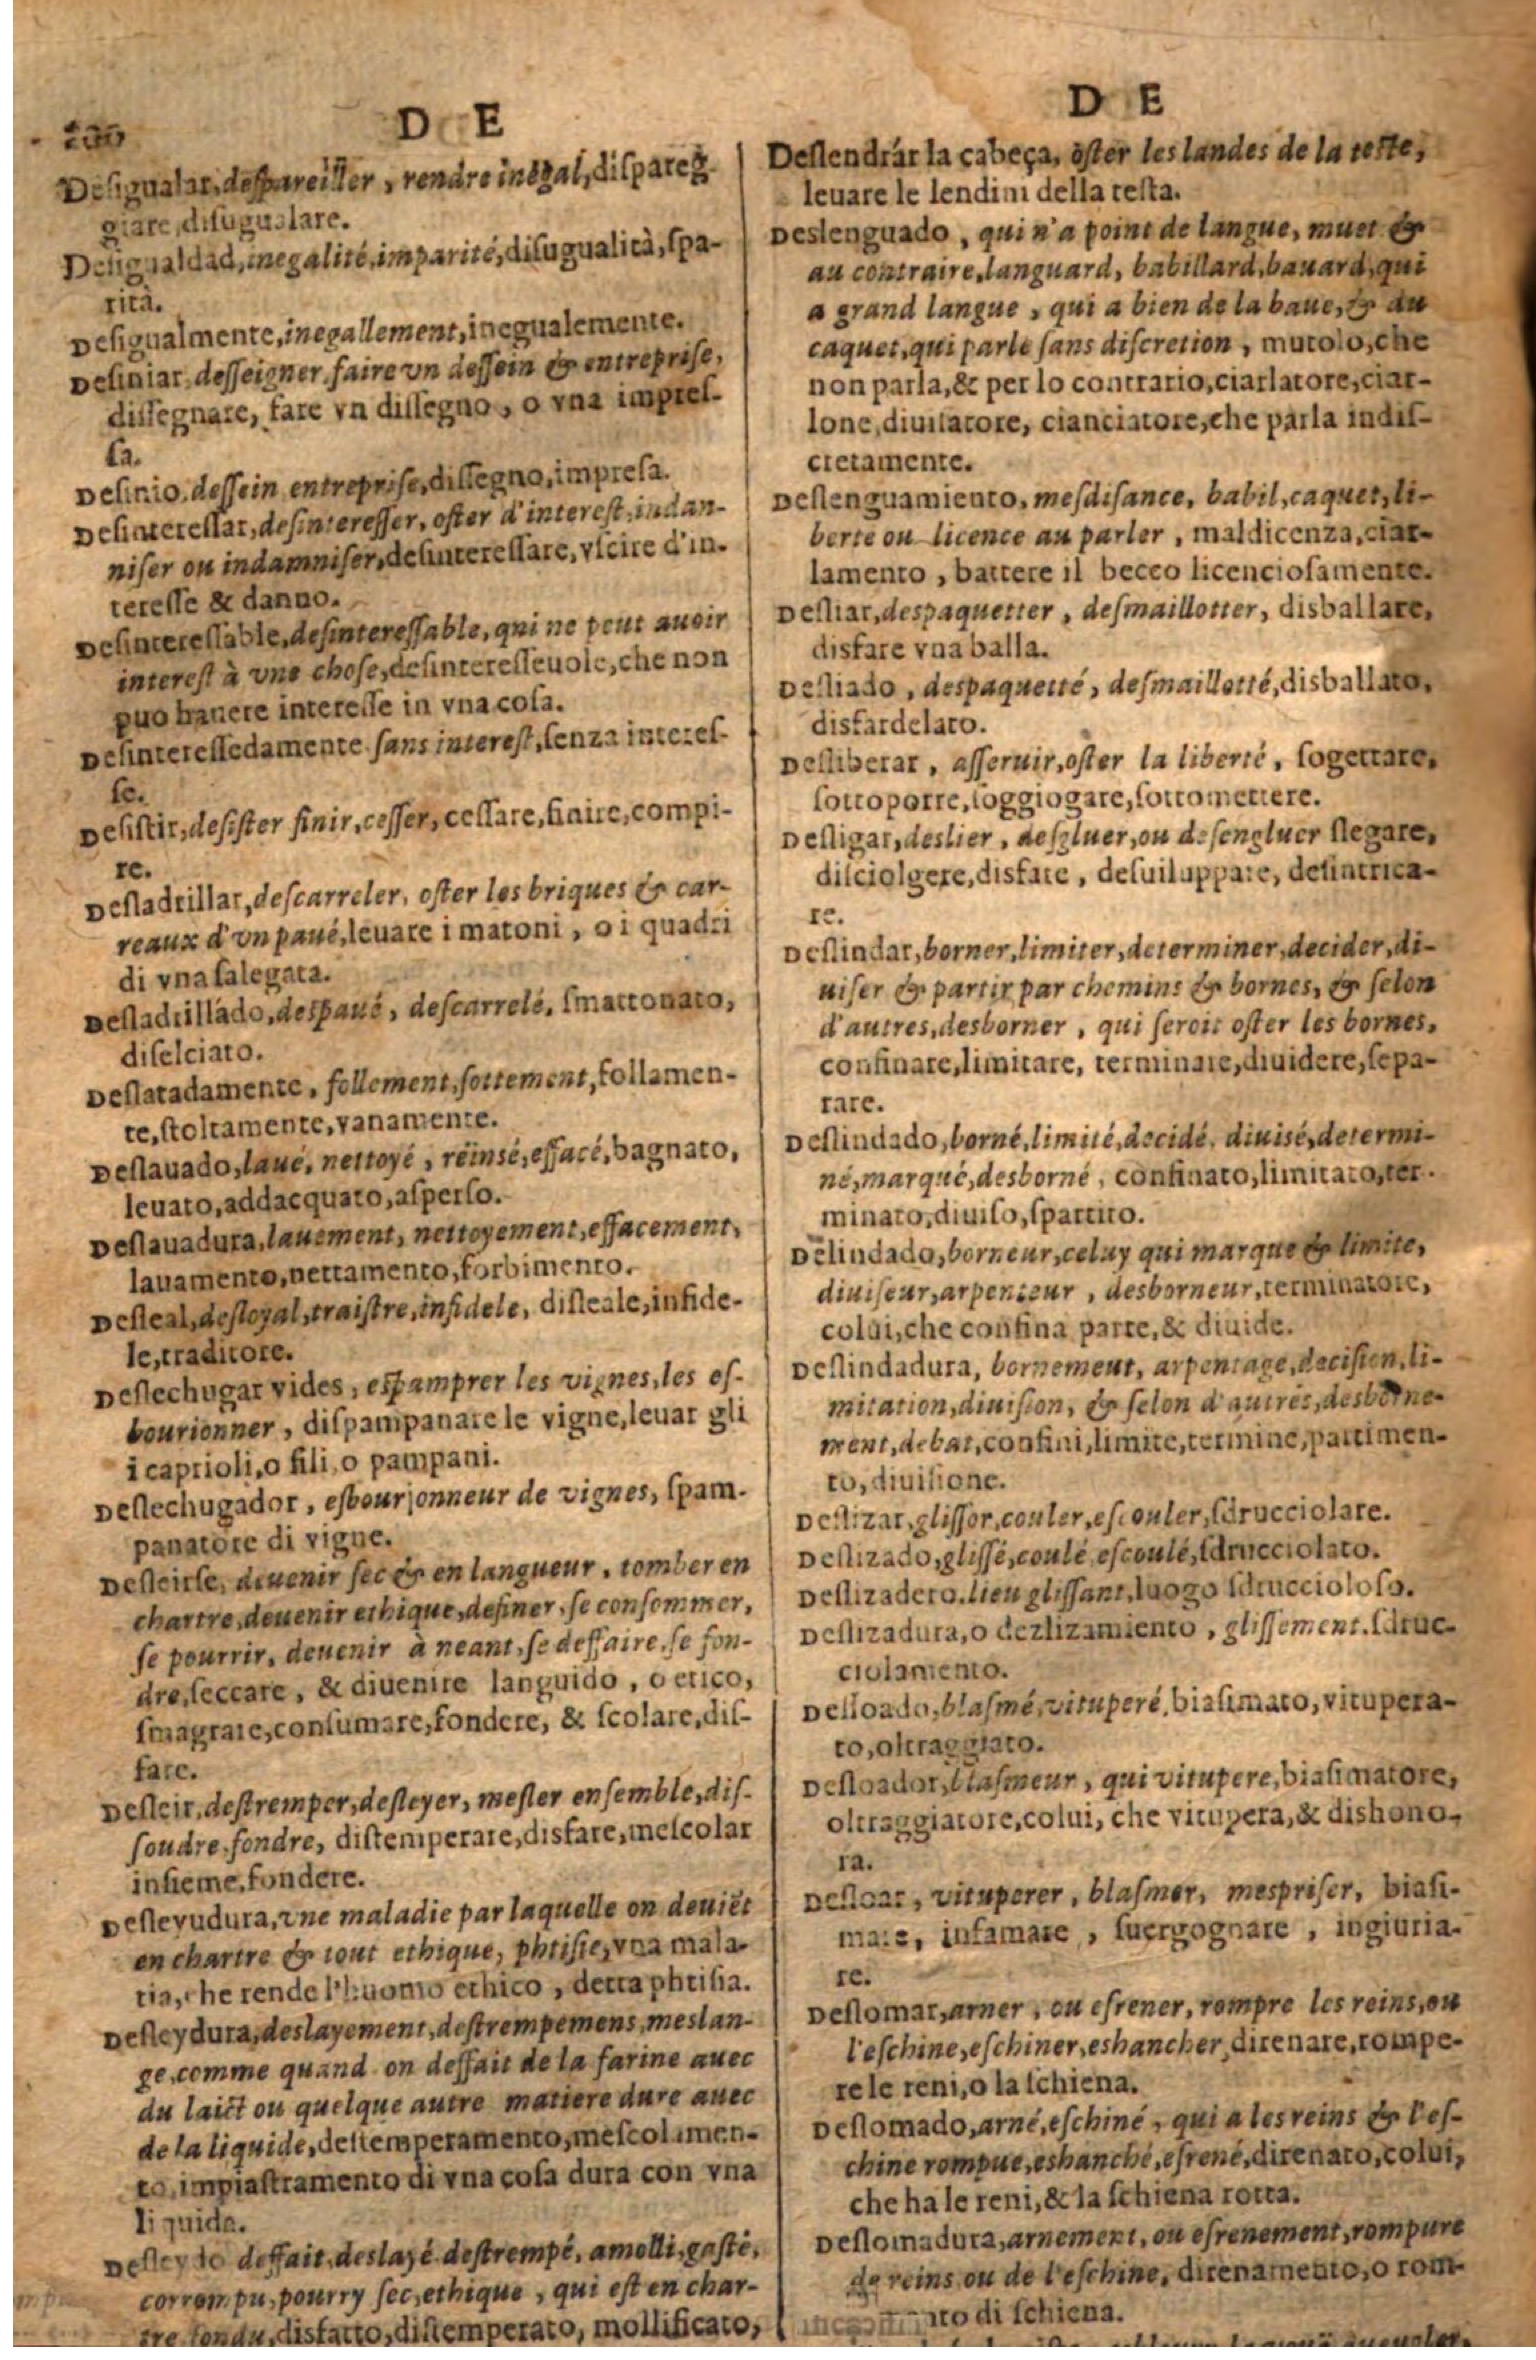 D E
Desigualar, despareiller, rendre inégal, dispareg-
giare, disugualare.
Desigualdad, inegalité, imparité, disugualità, spa-
rità.
Desigualmente, inegallement, inegualemente.
Desiniar, desseigner, faire vn dessein & entreprise,
dissegnare, fare vn dissegno, o vna impres-
sa.
Desinio, dessein entreprise, dissegno, impresa.
Desinteressar, desinteresser, oster d'interest, indan-
niser ou indamniser, desinteressare, vscire d'in-
teresse & danno.
Desinteressable, desinteressable, qui ne peut auoir
interest à vne chose, desinteresseuole, che non
puo hauere interesse in vna cosa.
Desinteressedamente sans interest, senza interes-
se.
Desistir, desister finir, cesser, cessare, finire, compi-
re.
Desladrillar, descarreler, oster les briques & car-
reaux d'vn paué, leuare i matoni, o i quadri
di vna salegata.
Desladrilládo, despaué, descarrelé, smattonato,
diselciato.
Deslatadamente, follement, sottement, follamen-
te, stoltamente, vanamente.
Deslauado, laué, nettoyé, rëinsé, effacé, bagnato,
leuato, addacquato, asperso.
Deslauadura, lauement, nettoyement, effacement,
lauamento, nettamento, forbimento.
Desleal, desloyal, traistre, infidele, disleale, infide-
le, traditore.
Deslechugar vides, espamprer les vignes, les es-
bourionner, dispampanare le vigne, leuar gli
i caprioli, o fili, o pampani.
Deslechugador, esbourjonneur de vignes, spam-
panatore di vigne.
Desleirse, deuenir sec & en langueur, tomber en
chartre, deuenir ethique, definer, se consommer,
se pourrir, deuenir à neant, se deffaire, se fon-
dre, seccare, & diuenire languido, o etico,
smagrare, consumare, fondere, & scolare, dis-
fare.
Desleir, destremper, desleyer, mesler ensemble, dis-
soudre, fondre, distemperare, disfare, mescolar
insieme, fondere.
Desleyudura, vne maladie par laquelle on deuiēt
en chartre & tout ethique, phtisie, vna mala-
tia, che rende l'huomo ethico, detta phtisia.
Desleydura, deslayement, destrempemens, meslan-
ge, comme quand on deffait de la farine auec
du laict ou quelque autre matiere dure auec
de la liquide, destemperamento, mescolamen-
to, impiastramento di vna cosa dura con vna
liquida.
Desleydo deffait, deslayé destrempé, amolli, gasté,
corrompu, pourry sec, ethique, qui est en char-
tre fondu, disfatto, distemperato, mollificato,
D E
Deslendrár la cabeça, oster les landes de la teste,
leuare le lendini della testa.
Deslenguado, qui n'a point de langue, muet &
au contraire, languard, babillard, bauard, qui
a grand langue, qui a bien de la baue, & du
caquet, qui parle sans discretion, mutolo, che
non parla, & per lo contrario, ciarlatore, ciar-
lone, diuisatore, cianciatore, che parla indis-
cretamente.
Deslenguamiento, mesdisance, babil, caquet, li-
berte ou licence au parler, maldicenza, ciar-
lamento, battere il becco licenciosamente.
Desliar, despaquetter, desmaillotter, disballare,
disfare vna balla.
Desliado, despaquetté, desmaillotté, disballato,
disfardelato.
Desliberar, asseruir, oster la liberté, sogettare,
sottoporre, soggiogare, sottomettere.
Desligar, deslier, desgluer, ou desengluer slegare,
disciolgere, disfare, desuiluppare, desintrica-
re.
Deslindar, borner, limiter, determiner, decider, di-
uiser & partir par chemins & bornes, & selon
d'autres, desborner, qui seroit oster les bornes,
confinare, limitare, terminare, diuidere, sepa-
rare.
Deslindado, borné, limité, decidé, diuisé, determi-
né, marqué, desborné, confinato, limitato, ter-
minato, diuiso, spartito.
Delindado, borneur, celuy qui marque & limite,
diuiseur, arpenteur, desborneur, terminatore,
colui, che confina parte, & diuide.
Deslindadura, bornement, arpentage, decision, li-
mitation, diuision, & selon d'autres, desborne-
ment, debat, confini, limite, termine, partimen-
to, diuisione.
Deslizar, glissor, couler, escouler, sdrucciolare.
Deslizado, glissé, coulé escoulé, sdrucciolato.
Deslizadero, lieu glissant, luogo sdruccioloso.
Deslizadura, o dezlizamiento, glissement, sdruc-
ciolamento.
Desloado, blasmé, vituperé, biasimato, vitupera-
to, oltraggiato.
Desloador, blasmeur, qui vitupere, biasimatore,
oltraggiatore, colui, che vitupera, & dishono-
ra.
Desloar, vituperer, blasmer, mespriser, biasi-
mare, infamare, suergognare, ingiuria-
re.
Deslomar, arner, ou esrener, rompre les reins, ou
l'eschine, eschiner, eshancher, direnare, rompe-
re le reni, o la schiena.
Deslomado, arné, eschiné, qui a les reins & l'es-
chine rompue, eshanché, esrené, direnato, colui,
che ha le reni, & la schiena rotta.
Deslomadura, arnement, ou esrenement, rompure
de reins ou de l'eschine, direnamento, o rom-
di schiena.